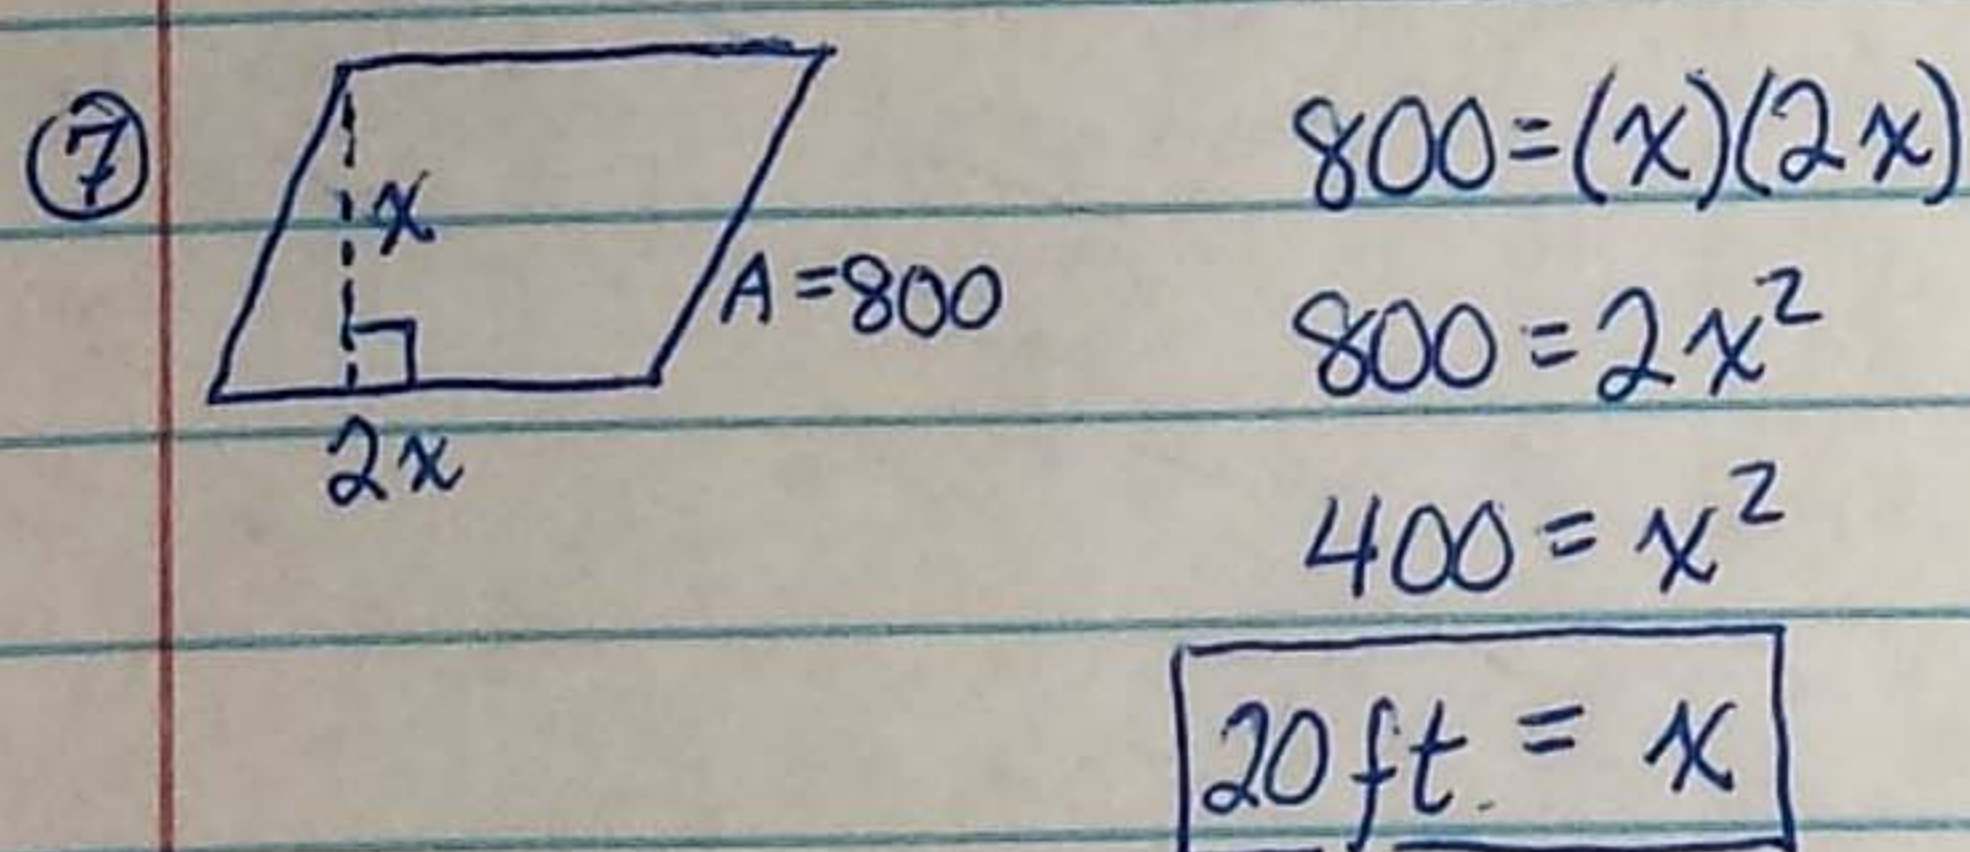 ⑦
x
A=800
2x
800=(x)(2x)
800=2x²
400=x²
20ft.=x